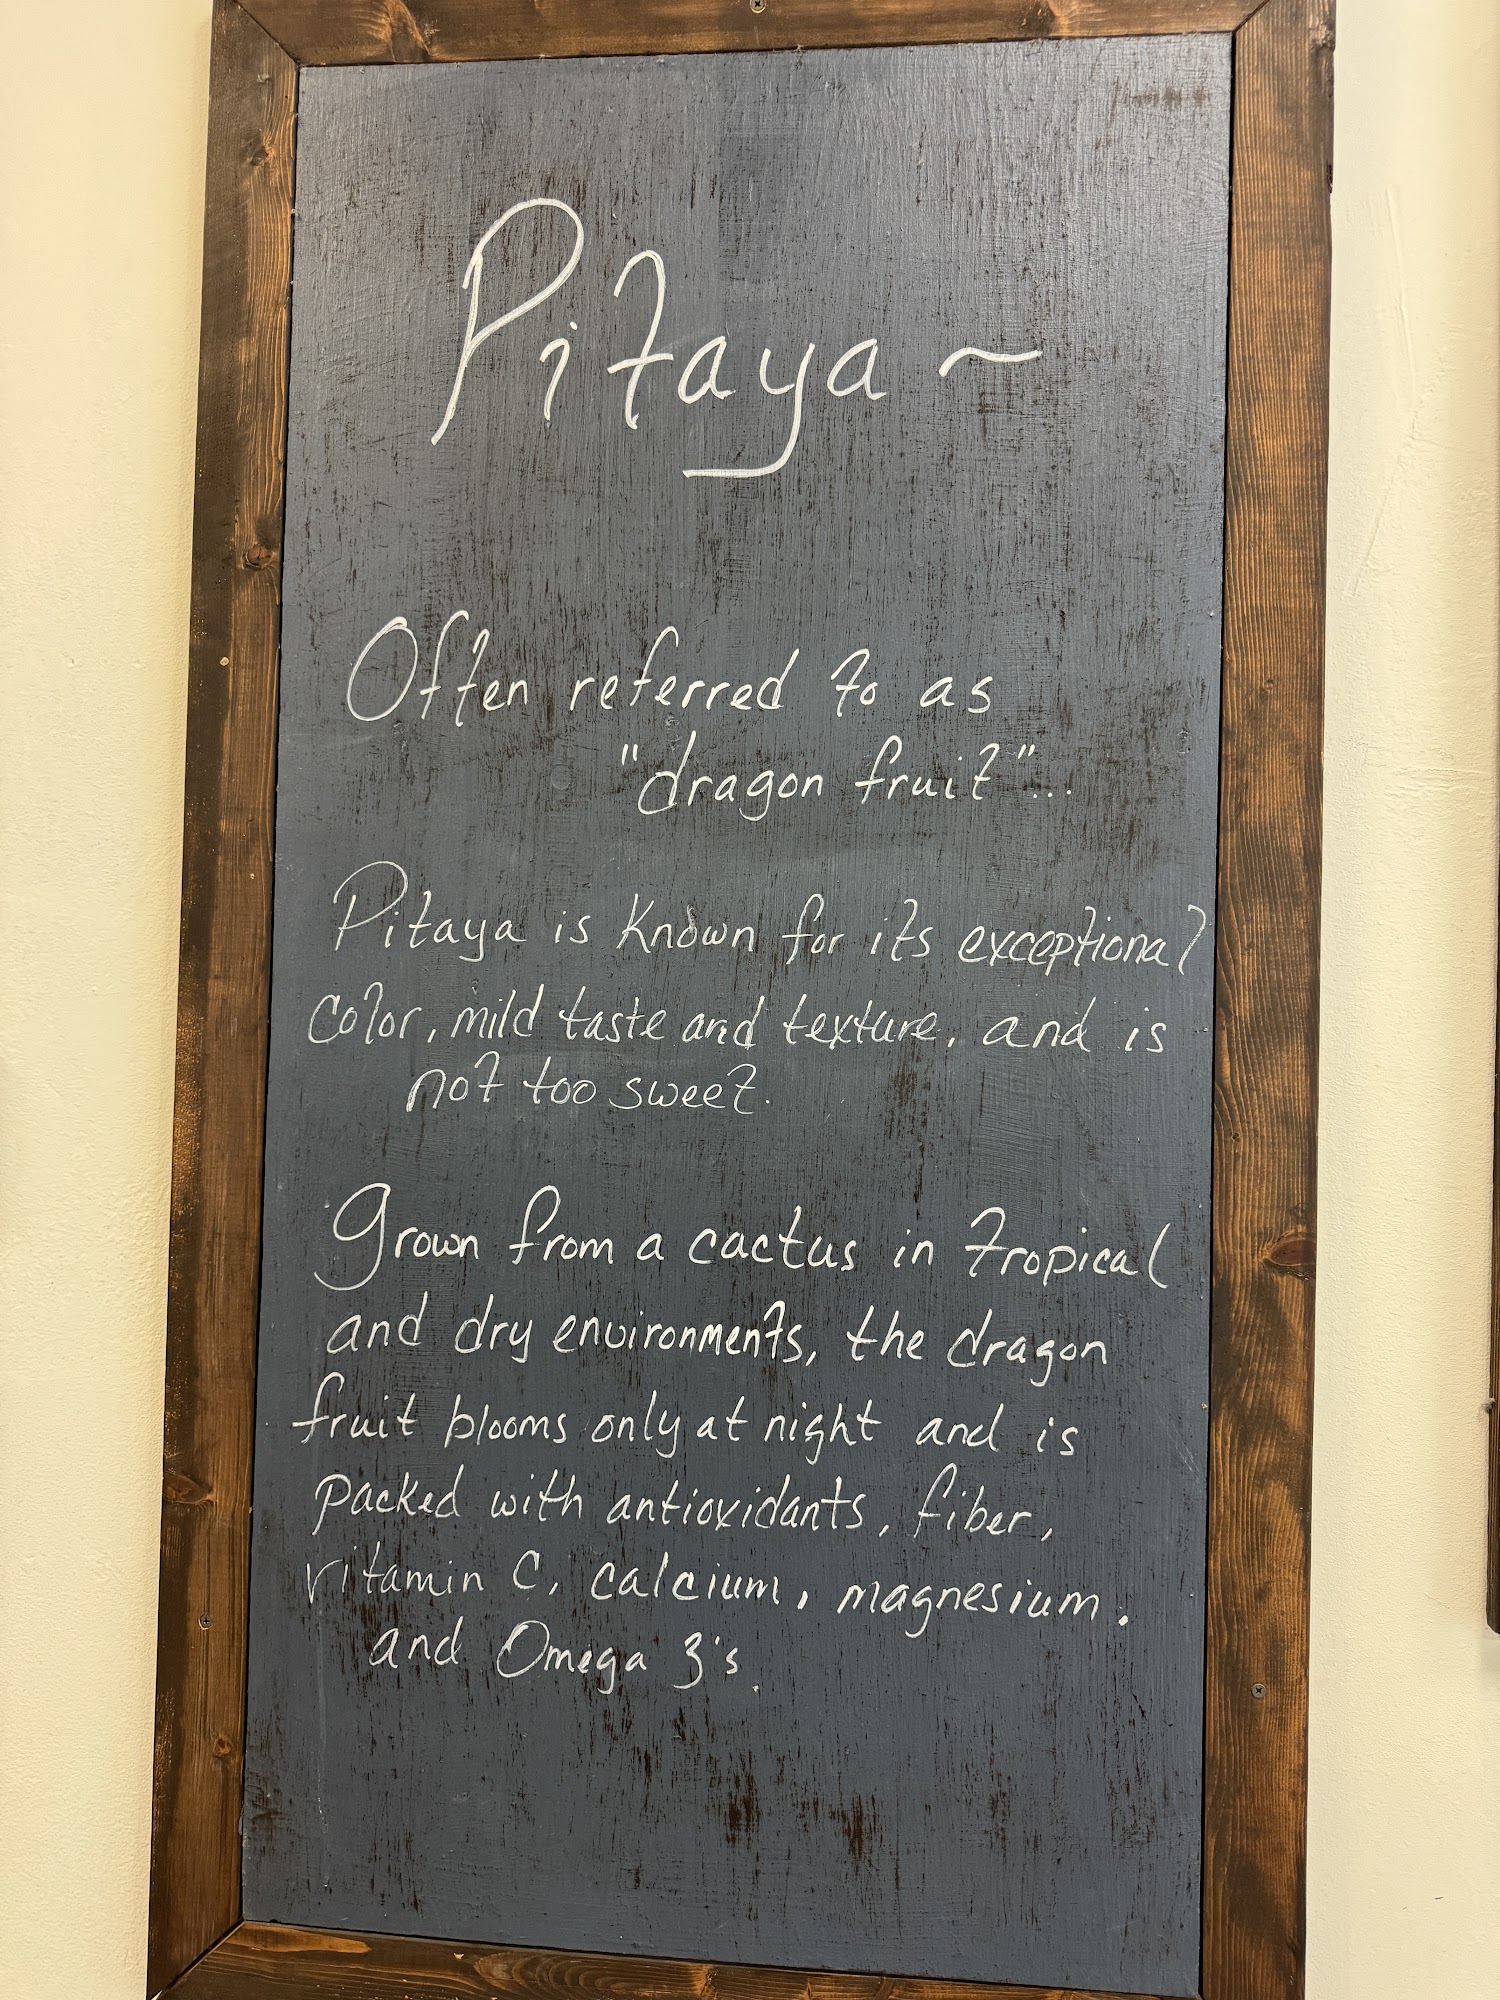 Pitaya ~
Often referred to as
"dragon fruit"...
Pitaya is known for its exceptional
color, mild taste and texture, and is
not too sweet.
Grown from a cactus in tropical
and dry environments, the dragon
fruit blooms only at night and is
packed with antioxidants, fiber,
vitamin C, calcium, magnesium,
and Omega 3's.